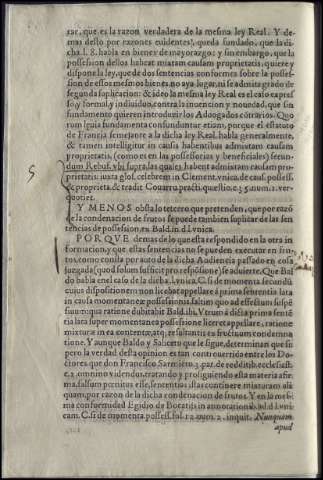 rar, que es la razon verdadera de la mesma ley Real. Y de
mas desto por razones euidentes, queda fundado, que la di
cha l. 8. habla en bienes de mayorazgo: y sin embargo, que la
possession dellos habeat mixtam causam proprietatis, quiere y
dispone la ley, que de dos sentencias conformes sobre la posses-
sion de essos mesmos bienes, no aya lugar, ni se admita grado de
segunda suplicacion: & ideo la mesma ley Real es el caso expres-
so, y formal, y indiuiduo, contra la inuencion y nouedad, que sin
fundamento quieren introduzir los Aduogados cõtrarios. Quo
rum leuia fundamenta confunduntur etiam, porque el estatuto
de Francia semejante a la dicha ley Real, habla generalmente,
& tamen intelligitur in causis habentibus admixtam causam
proprietatis, (como es en las possessorias y beneficiales) secun-
dum Rebuf. vbi supra, las quales habent admixtam causam pro-
prietatis: iuxta glos. celebrem in Clement. vnica, de caus. possess.
& propriet. & tradit Couarru. practi. question. c. 35. num. 2. ver-
Y MENOS obsta lo tercero que pretenden, que por razõ
de la condenacion de frutos se puede tambien suplicar de las sen
tencias de possession, ex Bald. in d. l. vnica.
PORQVE demas de lo que esta respondido en la otra in
formacion, y que estas sentencias no se pueden executar en fru-
tos, como consta por auto de la dicha Audiencia passado en cosa
juzgada (quod solum sufficit pro respõsione) se aduierte. Que Bal
do habla en el caso de la dicha l. vnica, C. si de momenta
cuius dispositione non licebat appellare à prima sententia lata
in causa momentaneæ possessionis, saltim quo ad effectum suspé
siuum: qua ratione dubitabit Bald. ibi, vtrum à dicta prima sentẽ
tia lata super momentanea possessione liceret appellare, ratione
mixturæ in ea contentæ, atq; resultantis ex fructuum condemna
tione. Y aunque Baldo y Saliceto que le sigue, determinan que si
pero la verdad desta opinion es tan controuertido entre los Do-
ctores que don Francisco Sarmiento, 1. par. de redditib. ecclesiast.
c. 2. omnino videndus, tratando y prosiguiendo esta materia afir-
ma, falsum penitus esse, sententias istas continere mixturam ali-
quam, por razon de la dicha condenacion de frutos. Y en la mes
ma conformidad Egidio de
eam. C. si de momenta possess. fol. 12. num. 2. inquit. Nunquam
apud